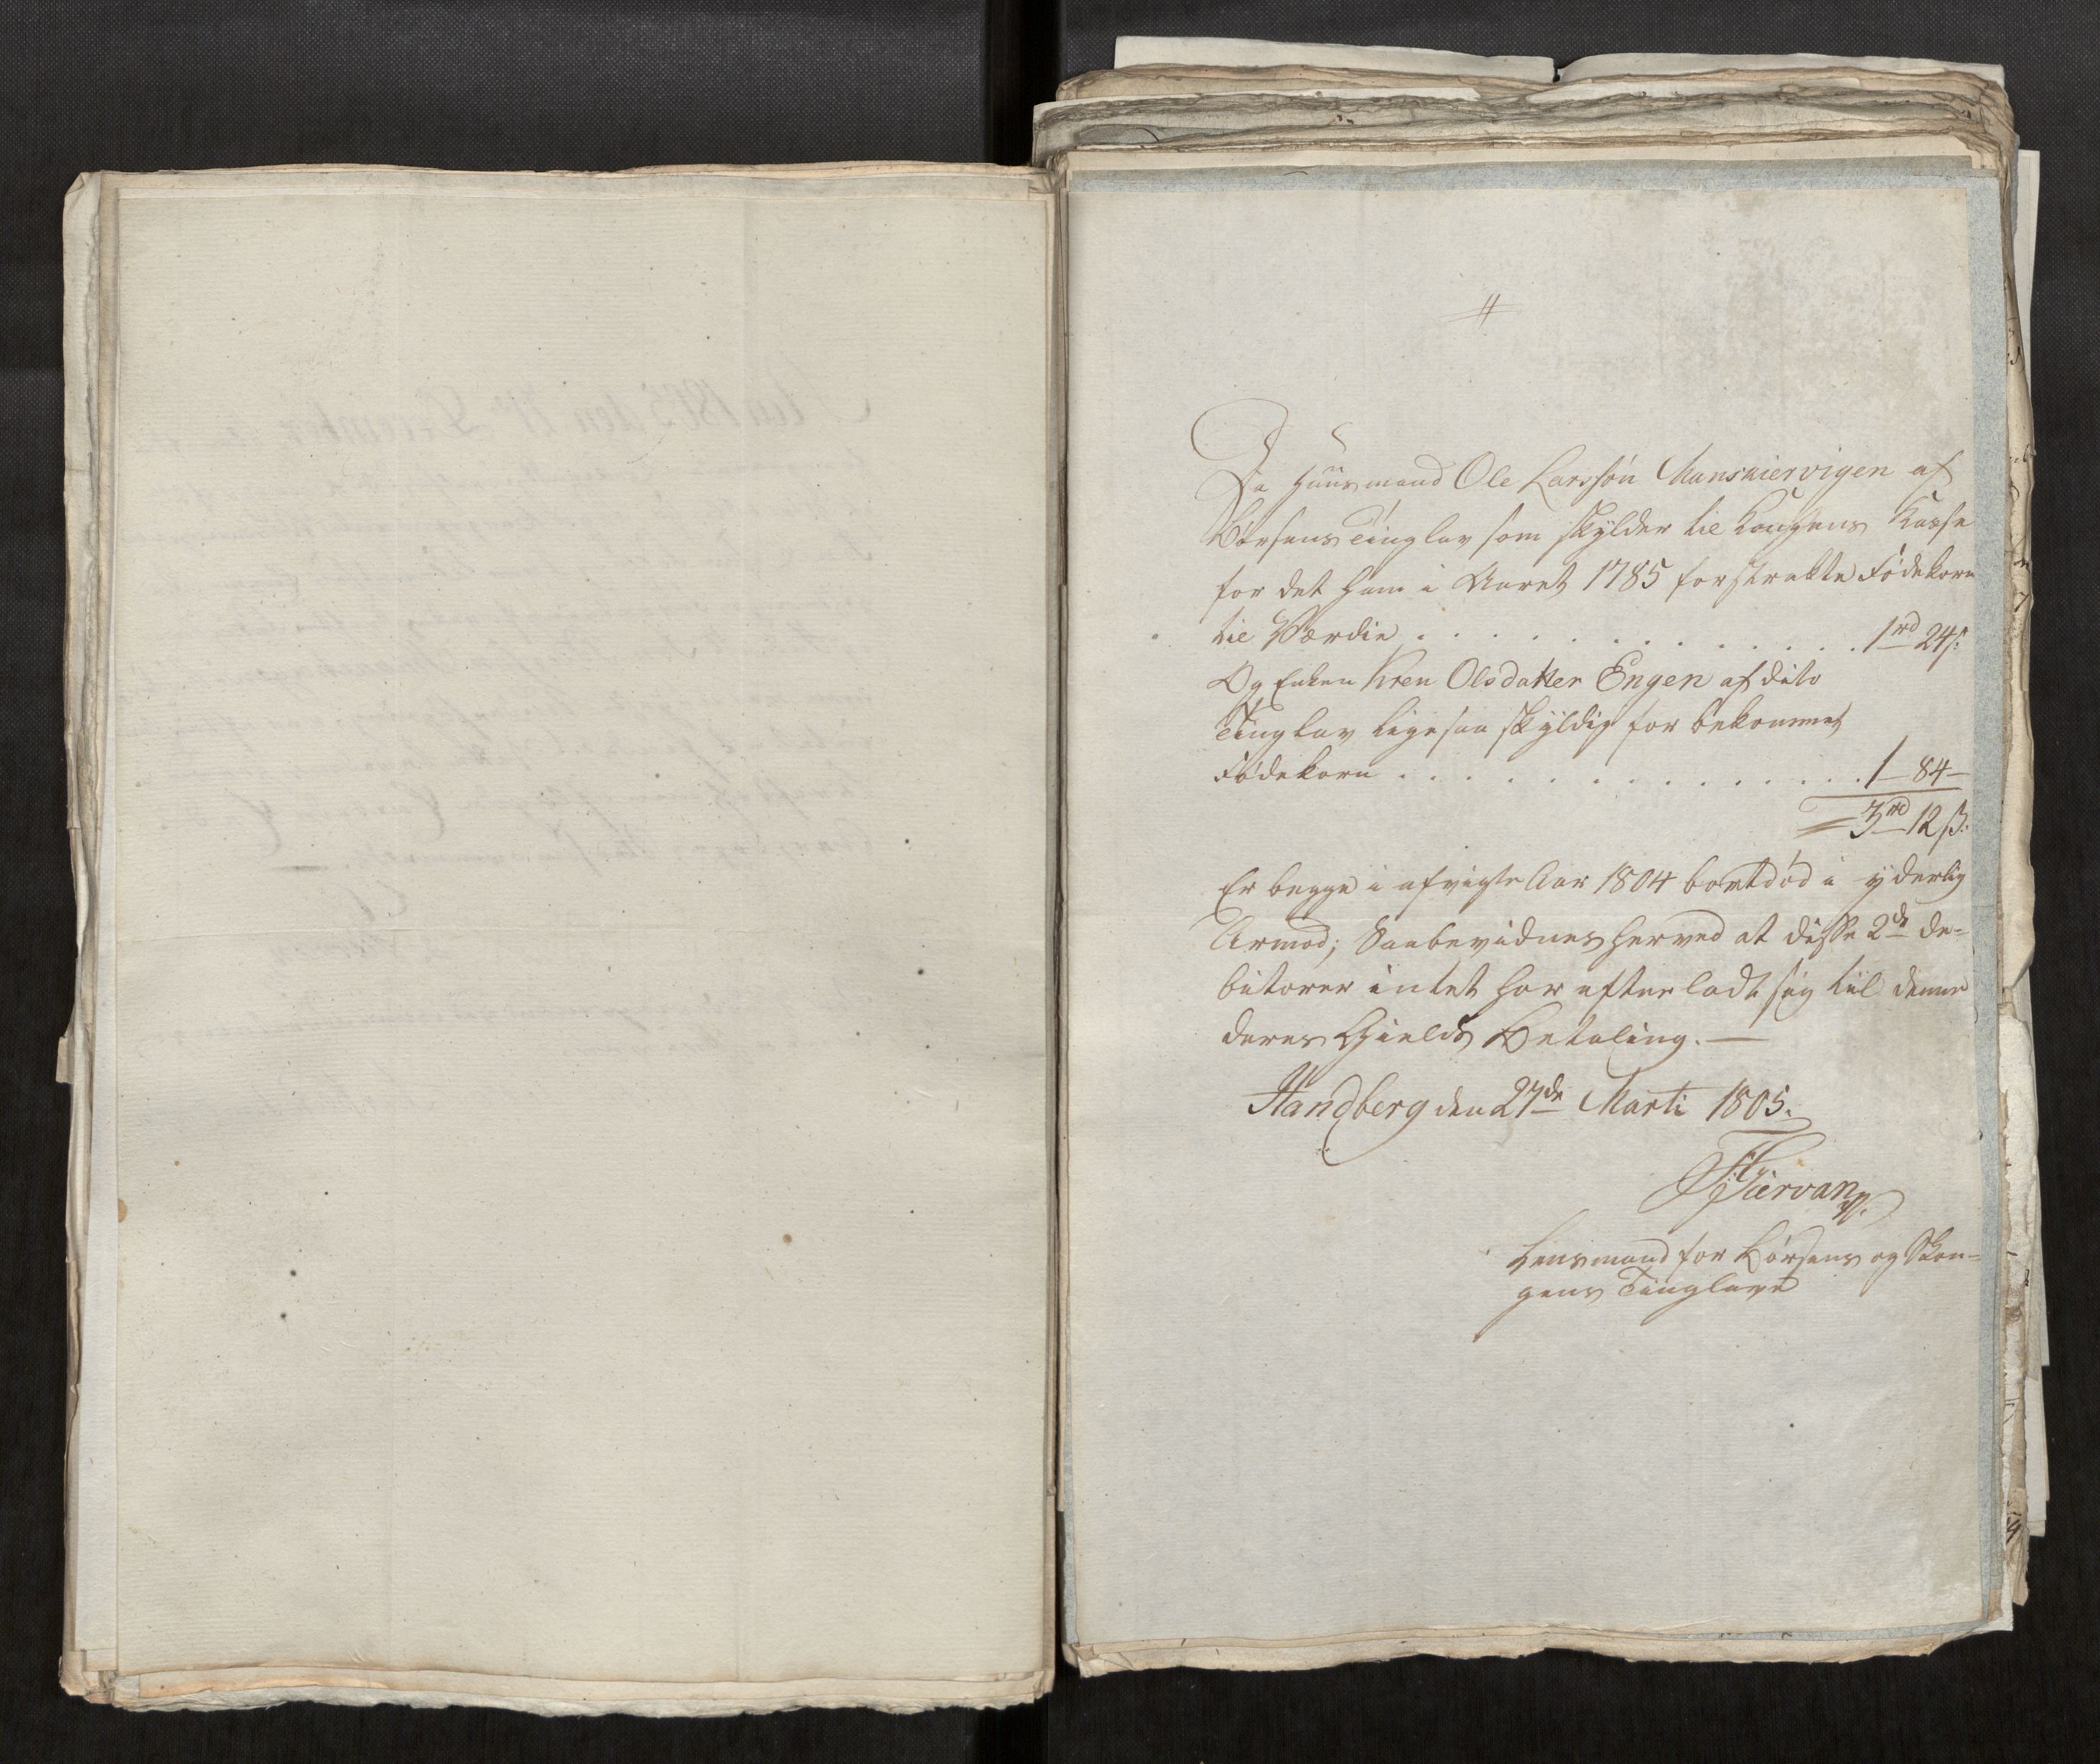 4
Da Huusmand Ole Larssøn Munskiervigen af
Børsens Tinglav som skylder til Kongens Kasse
for det ham i Aaret 1785 forstrakte Fødekorn
til Værdie . . . . . . . . . . . . 1rd 24s:
Og Enken Kren Olsdatter Engen af dito
Tinglav ligesaa skyldig for bekommet
Fødekorn . . . . . . . . . . . . 1 - 84 -
= 3rd 12ß:
Er begge i afvigte Aar 1804 bortdød i yderlig
Armod; Saa bevidnes herved at disse 2de de-
bitorer intet har efterladt sig til denne
deres Gields Betaling. —
Sandberg den 27de Marti 1805.
Lensmand for Børsens og Skon-
gens Tinglave